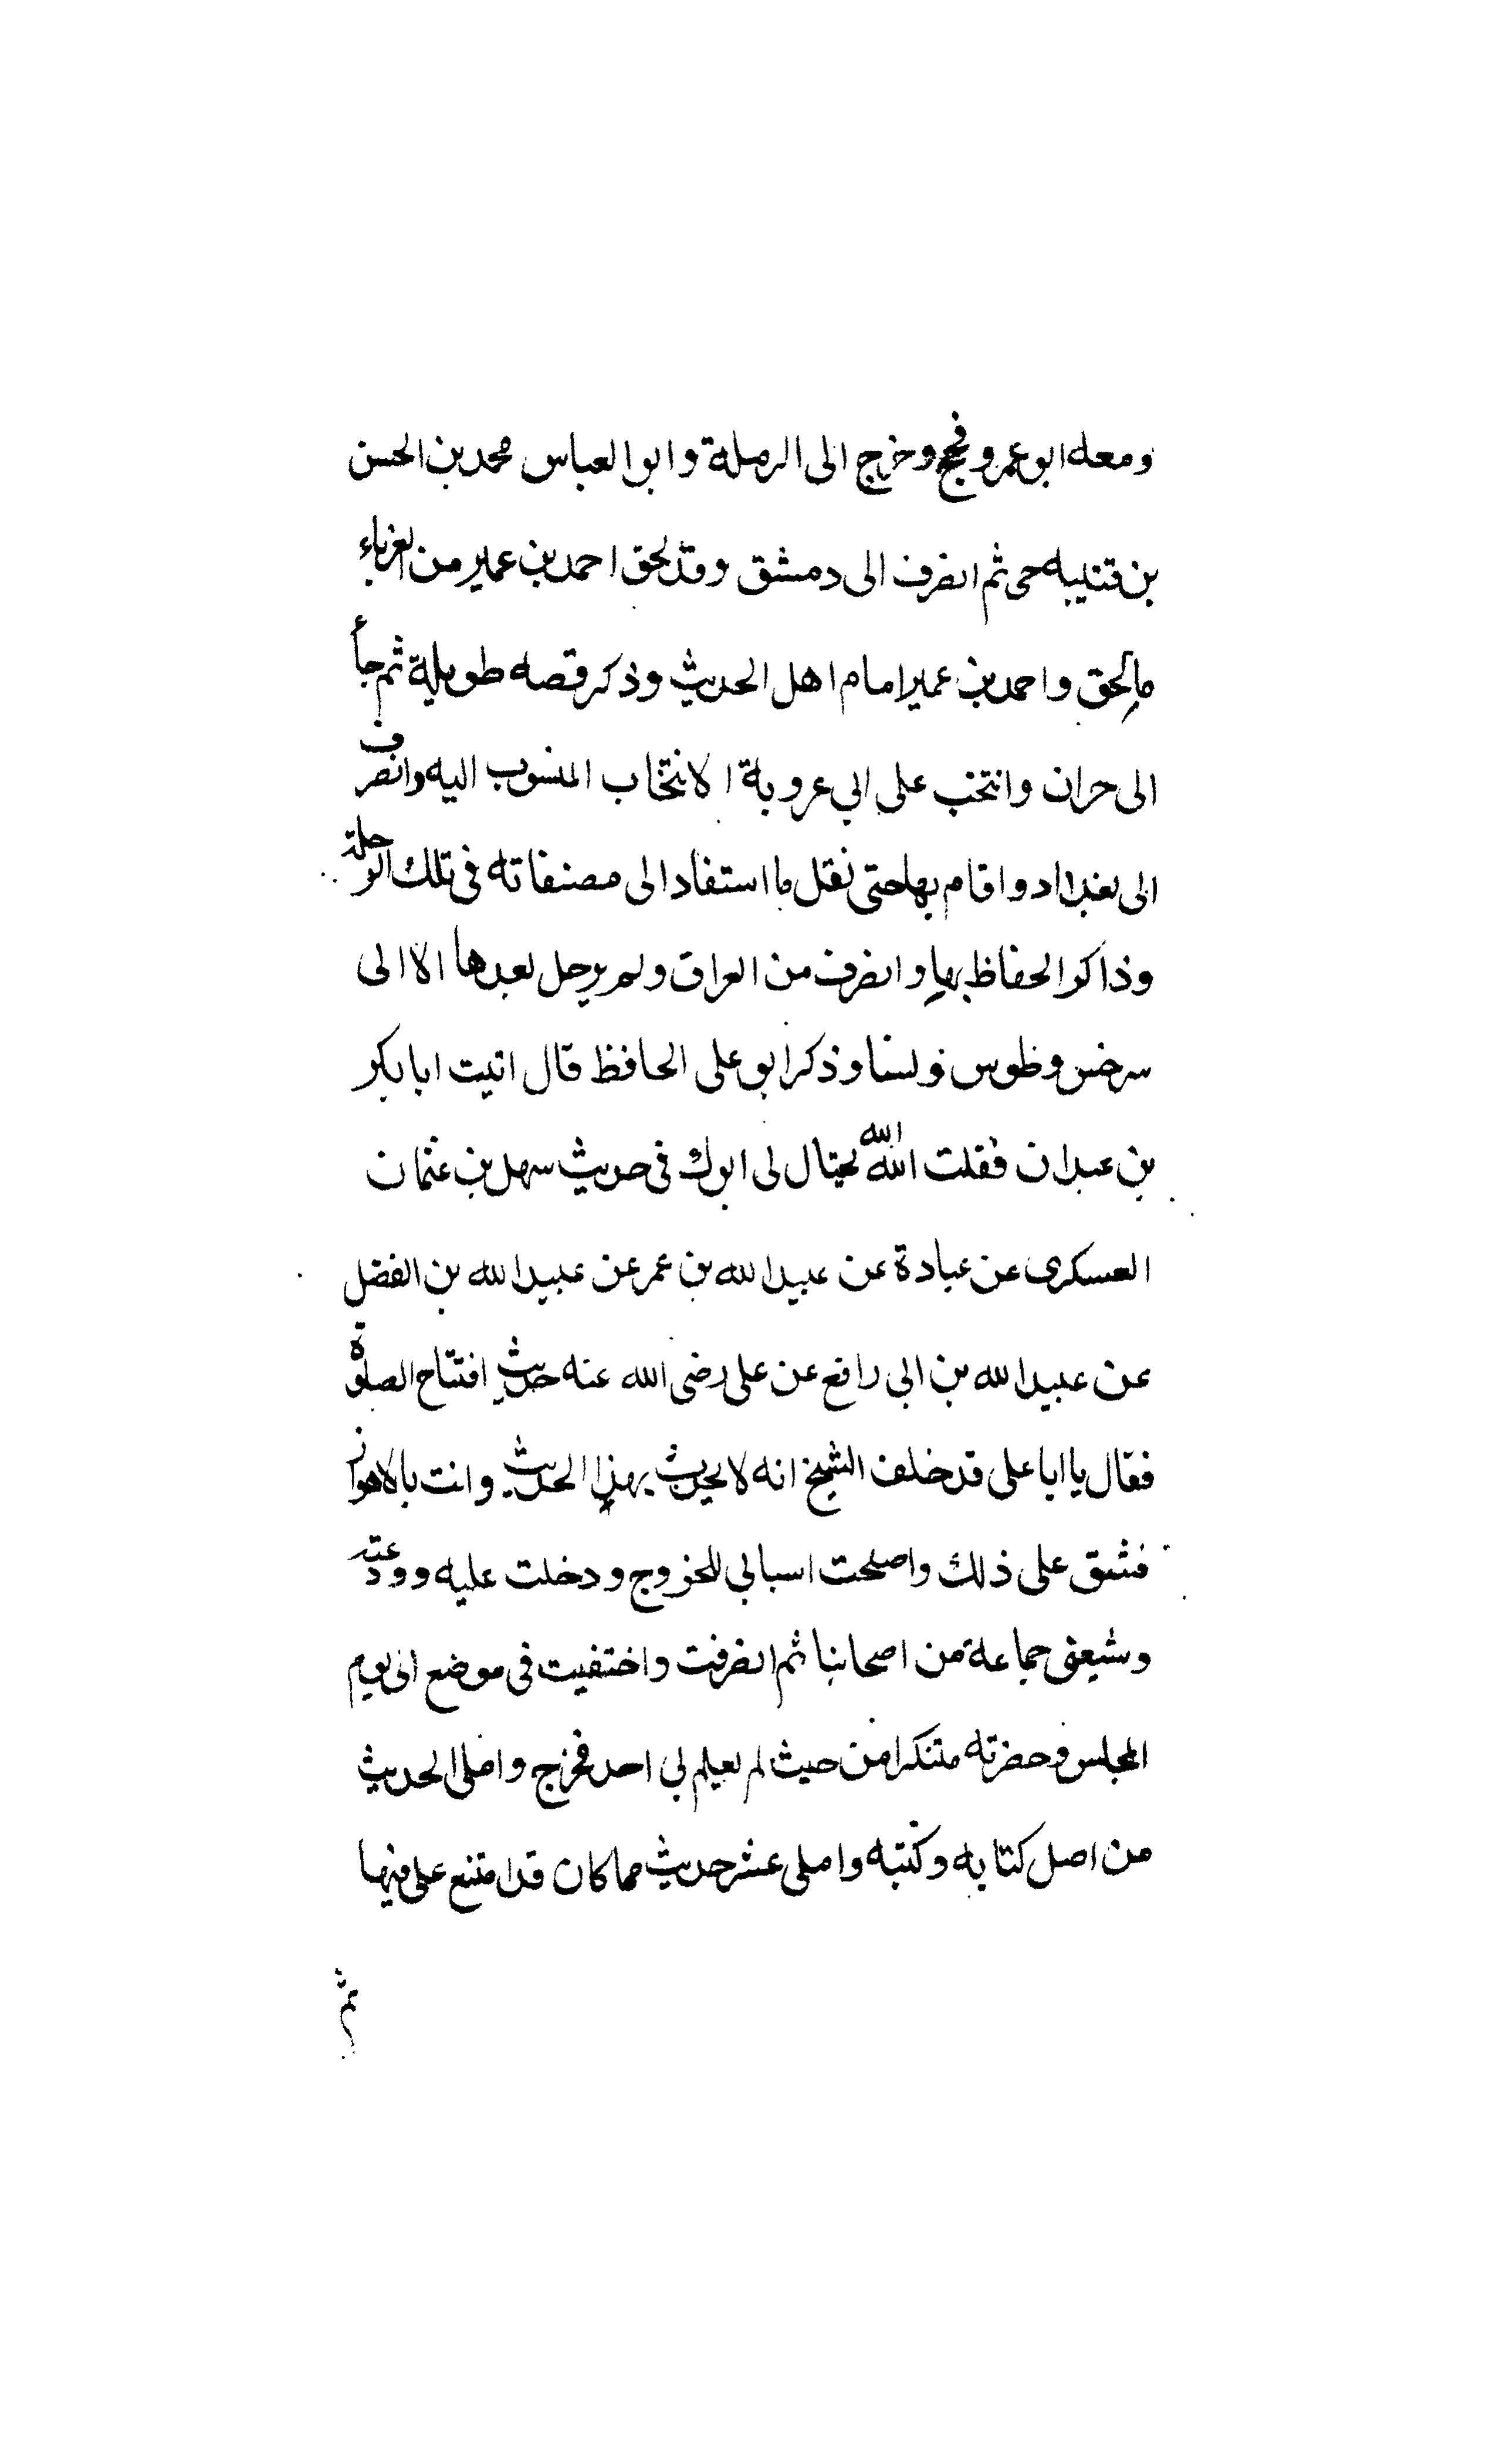 ومعه ابو عمرو فحج وخرج الى الرملة وابو العباس محمد بن الحسن
بن قتيبه حى ثم انصرف الى دمشق وقد لحق احمد بن عمير من الغرباء
ما لحق واحمد بن عمير امام اهل الحديث وذكر قصه طويلة ثم جاء
الى حران وانتخب على ابي عروبة الانتخاب المنسوب اليه وانصرف
الى بغداد واقام بها حتى نقل ما استفاد الى مصنفاته في تلك الرحلة
وذاكر الحفاظ بها وانصرف من العراق ولم يرحل بعدها الا الى
سرخس وطوس ونسا وذكر ابو على الحافظ قال اتيت ابا بكر
بن عبدان فقلت الله الله تحتال لى ابوك فى حديث سهل بن عثمان
العسكرى عن عبادة عن عبيد الله بن عمر عن عبيد الله بن الفضل
عن عبيد الله بن ابي رافع عن على رضى الله عنه حديث افتتاح الصلوة
فقال يا ابا على قد خلف الشيخ انه لا يحدث بهذا الحديث وانت بالاهواز
فشق على ذلك واصلحت اسبابي للخروج ودخلت عليه وودعته
وشيعني جماعة من اصحابنا ثم انصرفت واختفيت فى موضع الى يوم
المجلس وحضرته متنكرا من حيث لم يعلم بي احد فخرج واملى الحديث
من اصل كتابه وكتبه واملى عشر حديث مما كان قد امتنع على فيها
ثم